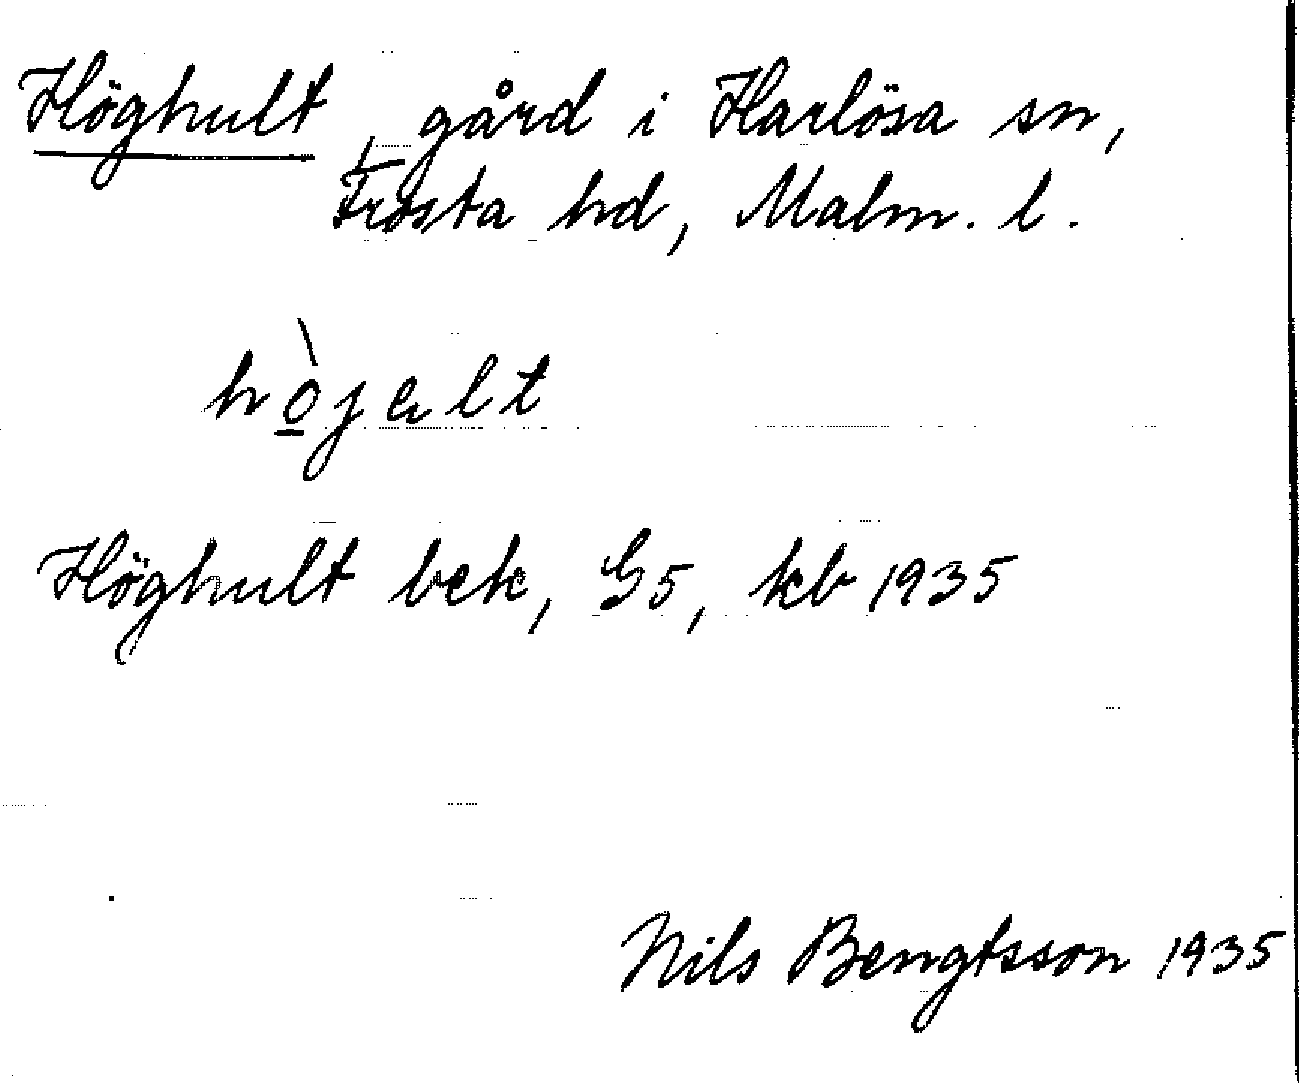 Höghult, gård i Harlösa sn,
Frosta hd, Malm. l.
hò̲jalt
Höghult bek, G5, kb 1935
Nils Bengtsson 1935